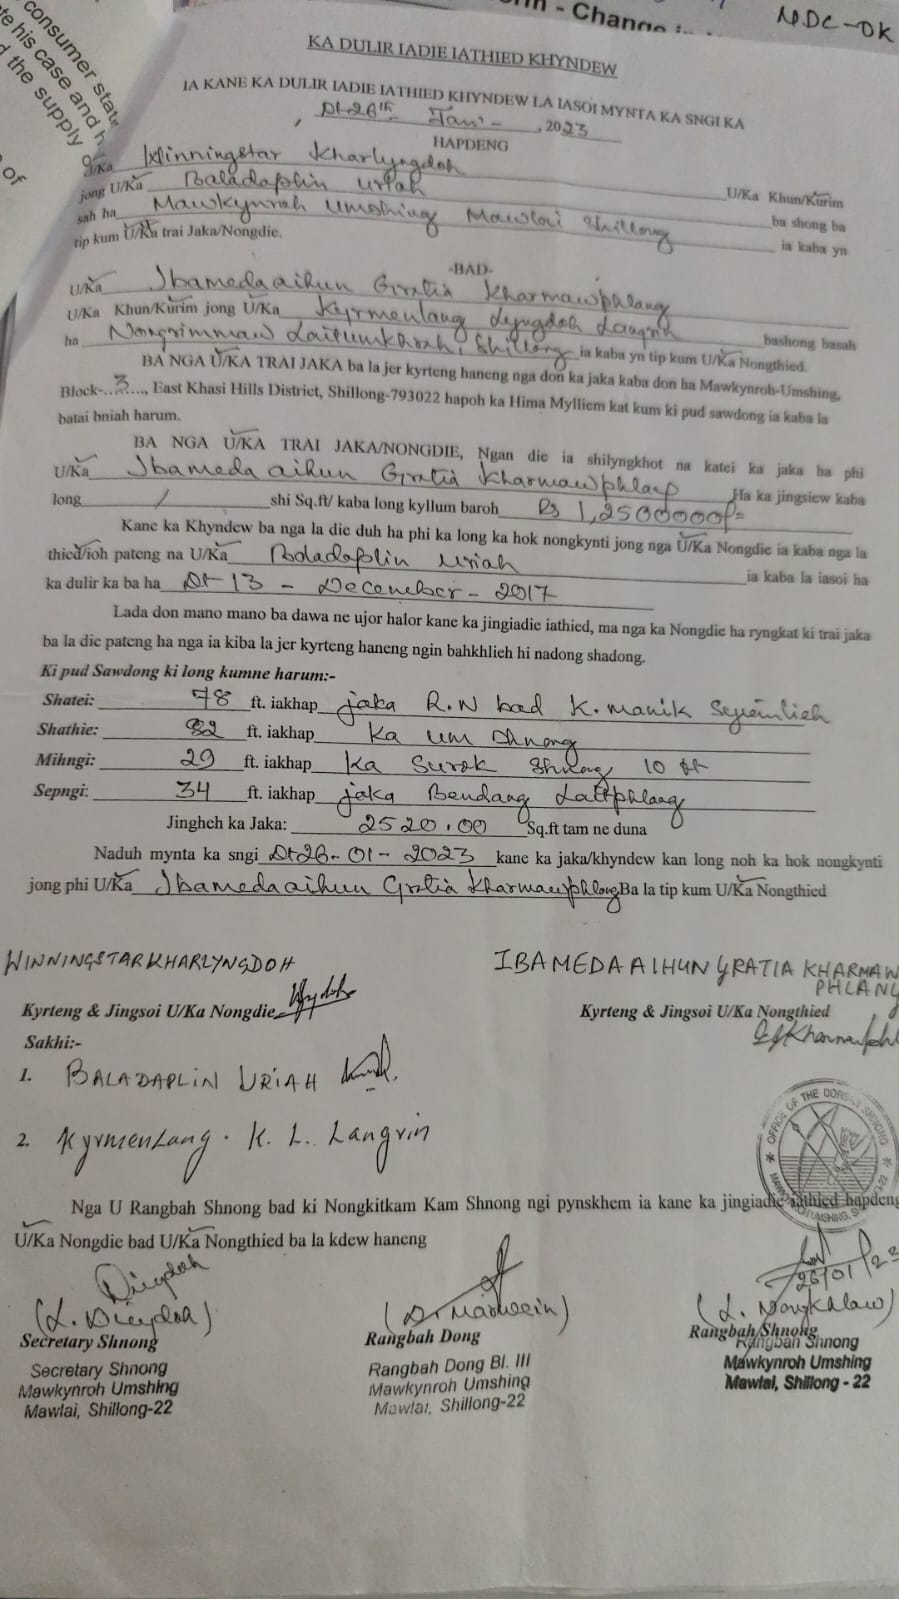 consumer stat
te his case and h
d the supply o
of
m - Change i
MDC-OK
KA DULIR IADIE IATHIED KHYNDEW
IA KANE KA DULIR IADIE IATHIED KHYNDEW LA IASOI MYNTA KA SNGI KA
, Dt-26th Jan' - , 2023
HAPDENG
U/Ka Winningstar Kharlyngdoh U/Ka Khun/Kurim
jong U/Ka Baladaplin Uriah ba shong ba
sah ha Mawkynroh Umshing Mawlai Shillong ia kaba yn
tip kum U/Ka trai Jaka/Nongdie.
-BAD-
U/Ka Ibamedaaihun Gratia Kharmawphlang
U/Ka Khun/Kurim jong U/Ka Kyrmenlang Lyngdoh Langrin bashong basah
ha Nongrimmaw Laitumkhrah, Shillong ia kaba yn tip kum U/Ka Nongthied.
BA NGA U/KA TRAI JAKA ba la jer kyrteng haneng nga don ka jaka kaba don ha Mawkynroh-Umshing,
Block-...3..., East Khasi Hills District, Shillong-793022 hapoh ka Hima Mylliem kat kum ki pud sawdong ia kaba la
batai bniah harum.
BA NGA U/KA TRAI JAKA/NONGDIE, Ngan die ia shilyngkhot na katei ka jaka ha phi
U/Ka Ibamedaaihun Gratia Kharmawphlang Ha ka jingsiew kaba
long / shi Sq.ft/ kaba long kyllum baroh Rs 1,2500000/=
Kane ka Khyndew ba nga la die duh ha phi ka long ka hok nongkynti jong nga U/Ka Nongdie ia kaba nga la
thied/ioh pateng na U/Ka Baladaplin Uriah ia kaba la iasoi ha
ka dulir ka ba ha Dt-13 - December - 2017
Lada don mano mano ba dawa ne ujor halor kane ka jingiadie iathied, ma nga ka Nongdie ha ryngkat ki trai jaka
ba la die pateng ha nga ia kiba la jer kyrteng haneng ngin bahkhlieh hi nadong shadong.
Ki pud Sawdong ki long kumne harum:-
Shatei: 78 ft. iakhap jaka R.N bad K. Manik Syiemlieh
Shathie: 82 ft. iakhap Ka um Shnong
Mihngi: 29 ft. iakhap Ka Surok Shnong 10 ft
Sepngi: 34 ft. iakhap jaka Bendang Laitphlang
Jingheh ka Jaka: 2520.00 Sq.ft tam ne duna
Naduh mynta ka sngi Dt 26-01-2023 kane ka jaka/khyndew kan long noh ka hok nongkynti
jong phi U/Ka Ibamedaaihun Gratia Kharmawphlang Ba la tip kum U/Ka Nongthied
WINNINGSTAR KHARLYNGDOH
IBAMEDAAIHUN GRATIA KHARMAW
PHLANG
Kyrteng & Jingsoi U/Ka Nongdie
Kyrteng & Jingsoi U/Ka Nongthied
Sakhi:-
1. BALADAPLIN URIAH
2. Kyrmenlang. K. L. Langrin
OFFICE OF THE DORBAR SHNONG
Nga U Rangbah Shnong bad ki Nongkitkam Kam Shnong ngi pynskhem ia kane ka jingiadie iathied hapdeng
U/Ka Nongdie bad U/Ka Nongthied ba la kdew haneng
26/01/23
(L. Diengdoh)
(L. Nongkhlaw)
Secretary Shnong
Rangbah Dong
Rangbah Shnong
Secretary Shnong
Mawkynroh Umshing
Mawlai, Shillong-22
Rangbah Dong Bl. III
Mawkynroh Umshing
Mawlai, Shillong-22
Rangbah Shnong
Mawkynroh Umshing
Mawlai, Shillong - 22